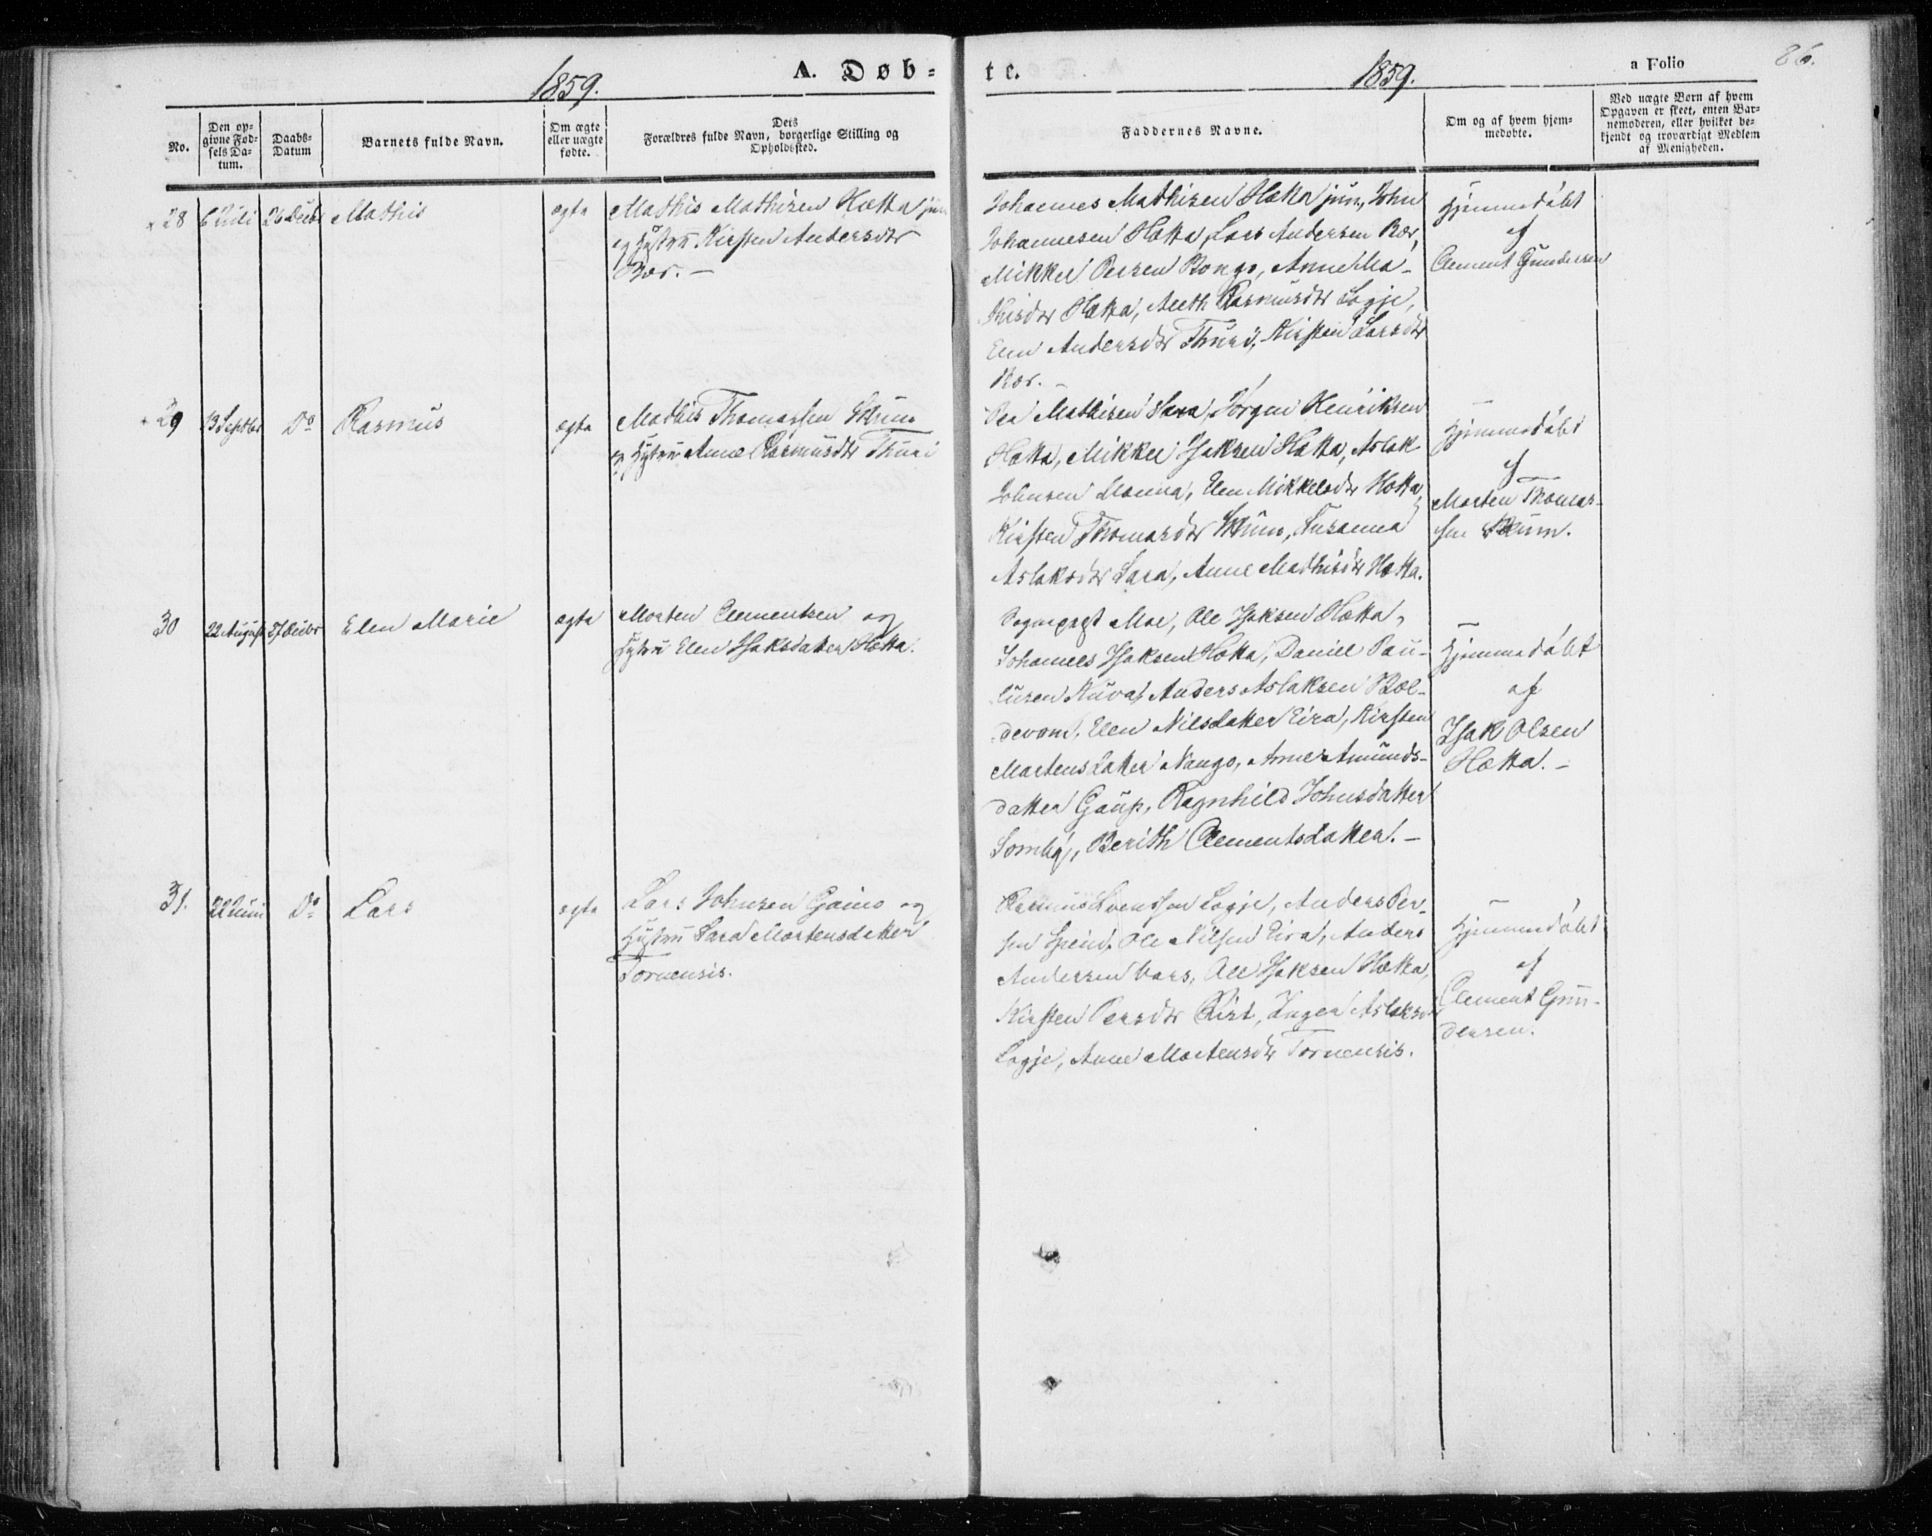 1859. A. Døb- te. 1859. a Folio 86.
No.
Den op-
givne Fød-
sels Da-
tum.
Daabs-
Datum
Barnets fulde Navn.
Om ægte
eller uægte
fødte.
Dets
Forældres fulde Navn, borgerlige Stilling og
Opholdssted.
Faddernes Navne.
Om og af hvem hjem-
medøbte.
Ved uægte Børn af hvem
Opgaven er skeet, enten Bar-
nemoderen, eller hvilket be-
kjendt og troværdigt Medlem
af Menigheden.
28 6 Juli 26 Decbr Mathis ægte
Mathis Mathisen Hætta jun
og Hustru Kirsten Andersdtr
Bær. –
Johannes Mathisen Hætta jun, John
Johannesen Hætta, Lars Andersen Bær,
Mikkel Persen Bongo, Anne Ma-
thisdtr Hætta, Aleth Rasmusdtr Logje,
Elen Andersdtr Thuri, Kirsten Larsdtr
Bær. –
Hjemmedøbt
af
Clement Gundersen
29 13 Septbr Do Rasmus ægte
Mathis Thomassen Skum
og Hustru Anne Rasmusdtr Thuri
Per Mathisen Sara, Jørgen Henriksen
Hætta, Mikkel Isaksen Hætta, Aslak
Johnsen Manna, Elen Mikkelsdtr Hætta,
Kirsten Thomasdtr Skum, Susanna
Aslaksdtr Sara, Anne Mathisdtr Hætta.
Hjemmedøbt
af
Morten Thomas-
sen Skum.
30 22 August 27 Decbr Elen Marie ægte
Morten Clementsen og
Hustru Elen Isaksdatter Hætta.
Sognepræst Moe, Ole Isaksen Hætta,
Johannes Isaksen Hætta, Daniel Pau-
lusen Kuva, Anders Aslaksen Bæl-
devom, Elen Nilsdatter Eira, Kirsten
Mortensdatter Nango, Anne Amunds-
datter Gaup, Ragnhild Johnsdatter
Somby, Berith Clementsdatter. –
Hjemmedøbt
af
Isak Olsen
Hætta. –
31. 22 Juni Do Lars ægte
Lars Johnsen Gaino og
Hustru Sara Mortensdatter
Tornensis.
Rasmus Svendsen Logje, Anders Per-
sen Spein, Ole Nilsen Eira, Anders
Andersen Vars, Ole Isaksen Hætta,
Kirsten Persdtr Rist, Inger Aslaksdtr
Logje, Anne Mortensdtr Tornensis.
Hjemmedøbt
af
Clement Gun-
dersen.